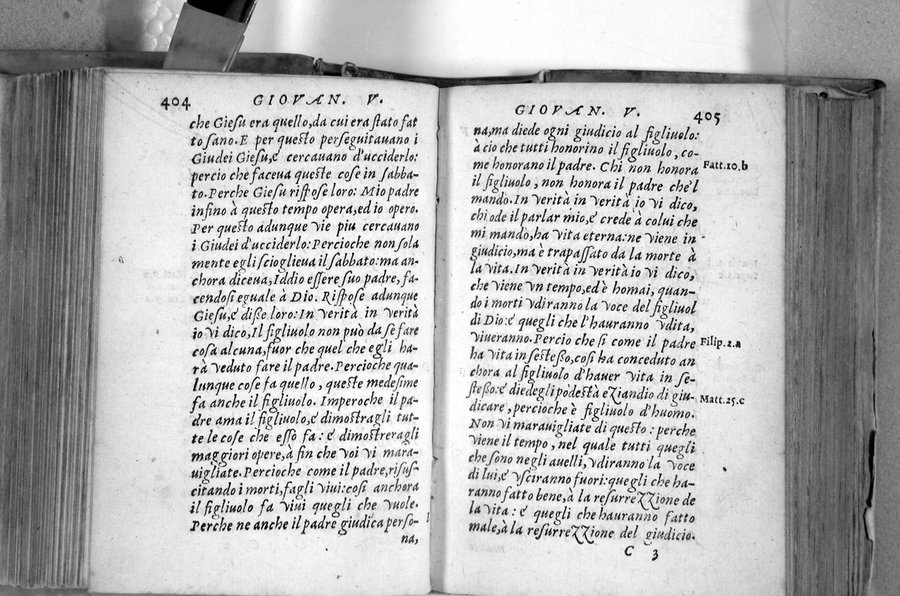 404
GIOVAN. V.
che Giesu era quello, da cui era stato fat
to sano. E per questo perseguitauano i
Giudei Giesu, e cercauano d'ucciderlo:
percio che faceua queste cose in Sabba-
to. Perche Giesu rispose loro: Mio padre
infino à questo tempo opera, ed io opero.
Per questo adunque vie piu cercauano
i Giudei d'ucciderlo: Percioche non sola
mente egli scioglieua il sabbato: ma an-
chora diceua, Iddio essere suo padre, fa-
cendosi eguale à Dio. Rispose adunque
Giesu, e disse loro: In verità in verità
io vi dico, Il figliuolo non può da sè fare
cosa alcuna, fuor che quel che egli ha-
rà veduto fare il padre. Percioche qua-
lunque cose fa quello, queste medesime
fa anche il figliuolo. Imperoche il pa-
dre ama il figliuolo, e dimostragli tut-
te le cose che esso fa: e dimostreragli
maggiori opere, à fin che voi vi mara-
uigliate. Percioche come il padre, risus-
citando i morti, fagli viui: cosi anchora
il figliuolo fa viui quegli che vuole.
Perche ne anche il padre giudica perso-
na,
GIOVAN. V.
405
na, ma diede ogni giudicio al figliuolo:
à cio che tutti honorino il figliuolo, co-
me honorano il padre. Chi non honora
Fatt.10.b
il figliuolo, non honora il padre che'l
mando. In verità in verità io vi dico,
chi ode il parlar mio, e crede à colui che
mi mandò, ha vita eterna: ne viene in
giudicio, ma è trapassato da la morte à
la vita. In verità in verità io vi dico,
che viene vn tempo, ed è homai, quan-
do i morti vdiranno la voce del figliuol
di Dio: e quegli che l'hauranno vdita,
viueranno. Percio che sì come il padre
Filip.2.a
ha vita in se stesso, cosi ha conceduto an
chora al figliuolo d'hauer vita in se-
stesso: e diedegli pòdestà eziandio di giu-
Matt.25.c
dicare, percioche è figliuolo d'huomo.
Non vi marauigliate di questo: perche
viene il tempo, nel quale tutti quegli
che sono negli auelli, vdiranno la voce
di lui, e vsciranno fuori: quegli che ha-
ranno fatto bene, à la resurrezzione de
la vita: e quegli che hauranno fatto
male, à la resurrezzione del giudicio.
C 3